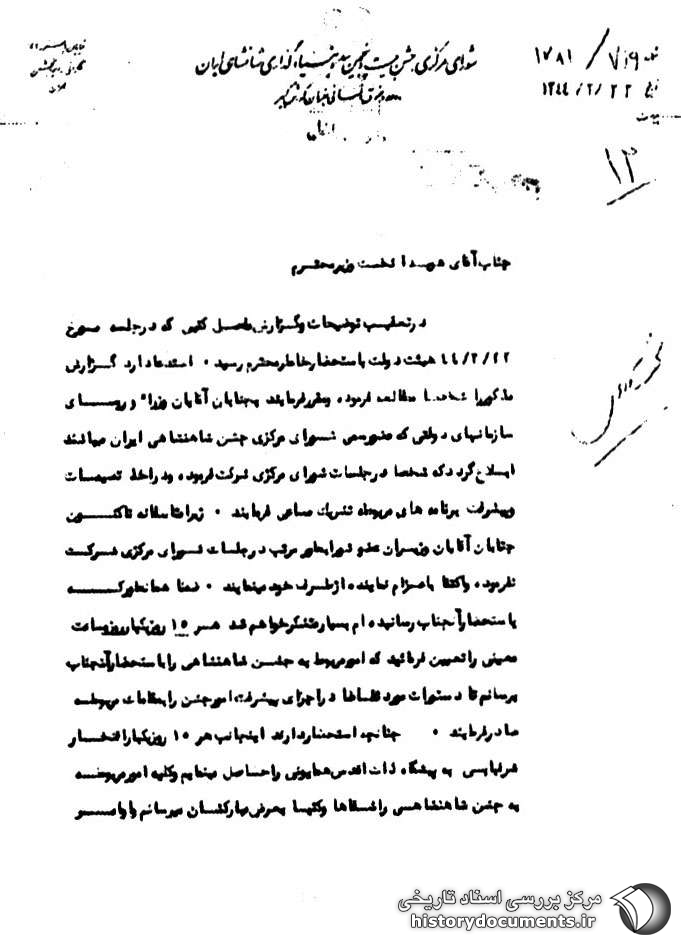 شماره ۷۱۹/ ۱۷۸۱
تاریخ ۱۳۴۴/۲/۲۲
پیوست
شورای مرکزی جشن بیست و پنجمین سده بنیاد گذاری شاهنشاهی ایران
۱۳
جناب آقای هویدا نخست وزیر محترم
در تعقیب توضیحات و گزارش مفصل کتبی که در جلسه مورخ
۴۴/۲/۲۲ هیئت دولت باستحضار خاطر محترم رسید ۰ استدعا دارد گزارش
مذکور را شخصا مطالعه فرموده و مقرر فرمایند بجنابان آقایان وزراء و روسای
سازمانهای دولتی که عضو رسمی شورای مرکزی جشن شاهنشاهی ایران میباشند
ابلاغ گردد که شخصا در جلسات شورای مرکزی شرکت فرموده و در اخذ تصمیمات
و پیشرفت برنامه های مربوطه تشریک مساعی فرمایند ۰ زیرا متاسفانه تاکنون
جنابان آقایان وزیران عضو شورا بطور مرتب در جلسات شورای مرکزی شرکت
نفرموده و اکتفا باعزام نماینده از طرف خود مینمایند ۰ ضمنا همانطور که
باستحضار آنجناب رسانیده ام بسیار متشکر خواهم شد هر ۱۵ روز یکبار روز و ساعت
معینی را تعیین فرمائید که امور مربوط به جشن شاهنشاهی را باستحضار آنجناب
برسانم تا دستورات مورد تقاضا در اجرای پیشرفت امور جشن را بمقامات مربوطه
صادر فرمایند ۰ چنانچه استحضار دارند اینجانب هر ۱۵ روز یکبار افتخار
شرفیابی به پیشگاه ذات اقدس همایونی را حاصل مینمایم و کلیه امور مربوطه
به جشن شاهنشاهی را شفاها و کتبا بعرض مبارکشان میرسانم و اوامر
مرکز بررسی اسناد تاریخی
historydocuments.ir